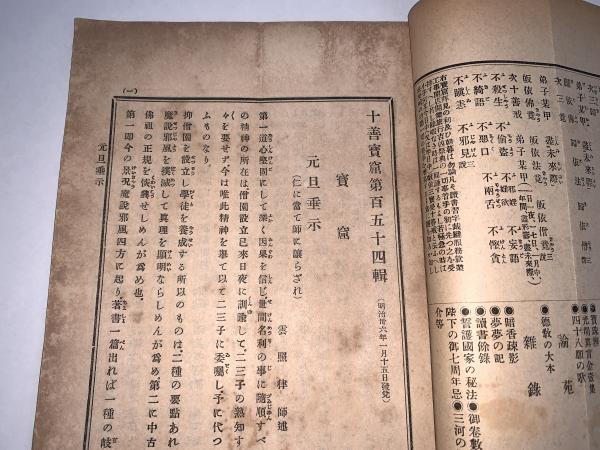 十善寶窟第百五十四輯
(明治卅六年一月十五日發兌)
寶窟
元旦垂示
(仁に當て師に讓らざれ)
雲照律師述
第一道心堅固にして深く因果を信じ世間名利の事に隨順すべ
の精神の所在は僧園設立已來日夜に訓諭して二三子の熟知す
々を要せず今は唯此精神を擧て以て二三子に委囑し予に代つ
ふものなり
抑僧園を設立し學徒を養成する所以のものは二種の要點あれ
魔說邪風を撲滅して眞理を顯明ならしめんが爲め第二に中古
佛祖の正規を恢興せしめんが爲め也
第一即今の景况魔說邪風四方に起り著書一篇出れば一種の岐
元旦垂示
(一)
次三歸
弟子某甲
盡未來際
歸依佛
歸依法
歸依僧
次三竟
弟子某甲
皈依佛竟
皈依法竟
皈依僧竟
次十善戒
弟子某甲
盡未來際
不殺生
不偸盜
不邪婬
不妄語
不綺語
不惡口
不兩舌
不慳貪
不瞋恚
不邪見
論苑
四十八願の歌
德敎の大本
雜錄
●暗香疎影
●夢夢の記
●讀書餘錄
●誓護國家の秘法
●御卷數
陛下の御七周年忌
●三河の
介等